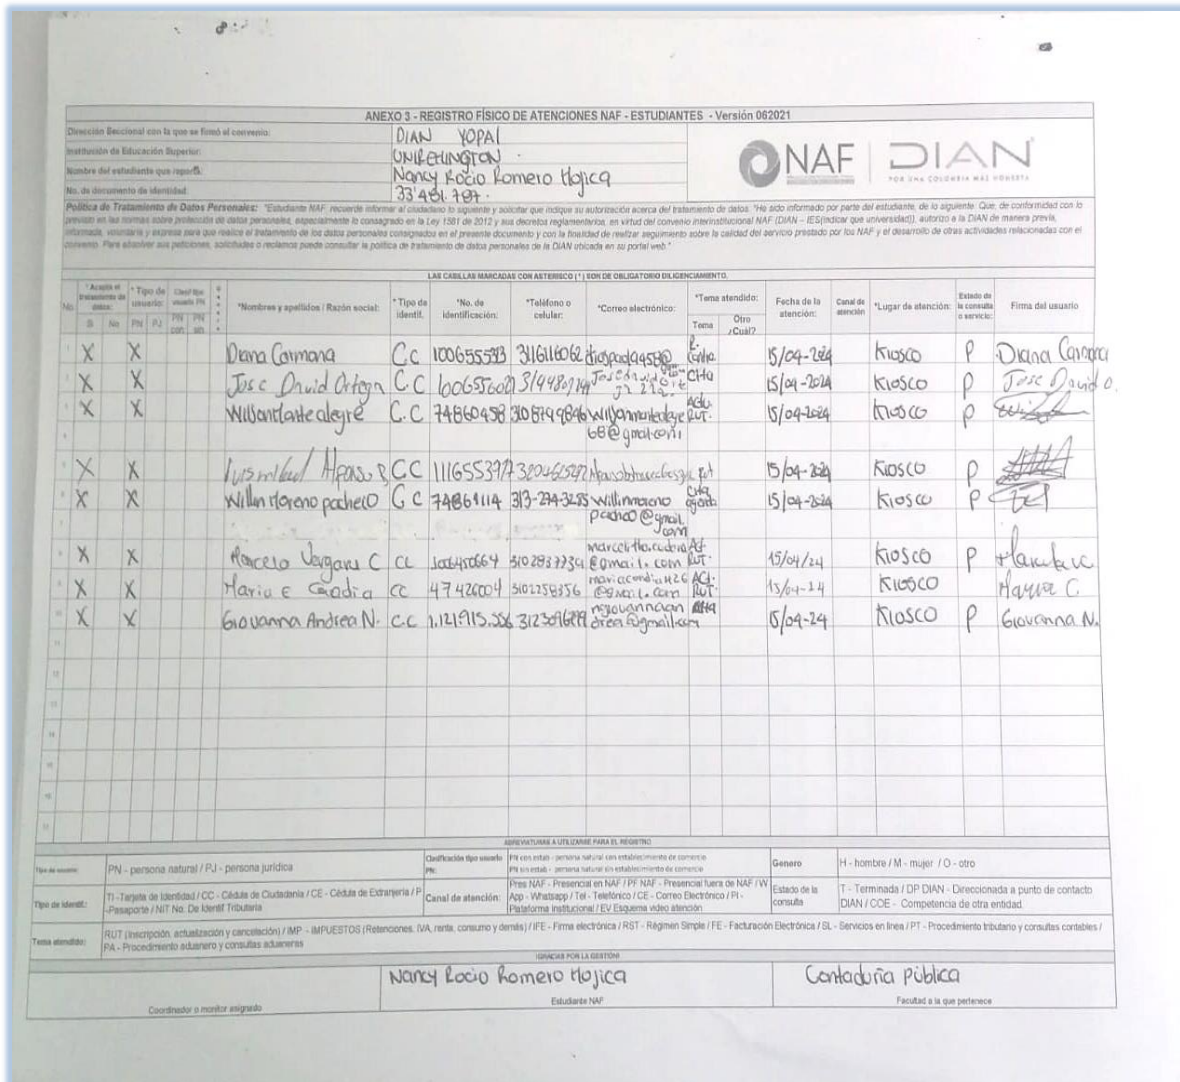 ANEXO 3 - REGISTRO FÍSICO DE ATENCIONES NAF - ESTUDIANTES - Versión 062021
Dirección Seccional con la que se firmó el convenio: DIAN YOPAL
Institución de Educación Superior: UNIREHINGTON
Nombre del estudiante que reporta: Nancy Rocio Romero Hojica
No. de documento de identidad: 33'481.787
NAF DIAN
POR UNA COLOMBIA MÁS HONESTA
Política de Tratamiento de Datos Personales: "Estudiante NAF, recuerde informar al ciudadano lo siguiente y solicitar que indique su autorización acerca del tratamiento de datos: "He sido informado por parte del estudiante, de lo siguiente: Que, de conformidad con lo
previsto en las normas sobre protección de datos personales, especialmente lo consagrado en la Ley 1581 de 2012 y sus decretos reglamentarios, en virtud del convenio interinstitucional NAF (DIAN - IES(indicar que universidad)), autorizo a la DIAN de manera previa,
informada, voluntaria y expresa para que realice el tratamiento de los datos personales consignados en el presente documento y con la finalidad de realizar seguimiento sobre la calidad del servicio prestado por los NAF y el desarrollo de otras actividades relacionadas con el
convenio. Para absolver sus peticiones, solicitudes o reclamos puede consultar la política de tratamiento de datos personales de la DIAN ubicada en su portal web."
LAS CASILLAS MARCADAS CON ASTERISCO (*) SON DE OBLIGATORIO DILIGENCIAMIENTO.
No. *Acepta el tratamiento de datos: *Tipo de usuario: *Nombres y apellidos / Razón social: *Tipo de identif. *No. de identificación: *Teléfono o celular: *Correo electrónico: *Tema atendido: Fecha de la atención: Canal de atención *Lugar de atención: Estado de la consulta o servicio: Firma del usuario
Si No PN PJ PN con PN sin Tema Otro ¿Cuál?
X X Diana Carmona C.C 3116116062 15/04-2024 Kiosco P Diana Carmona
X X Jose David Ortega C.C CHa 15/04-2024 Kiosco P Jose David O.
X X C.C 74860458 RUT. 15/04-2024 Kiosco P
68@gmail.com
X X Alfonso CC 15/04-2024 Kiosco P
X X Willin Moreno pacheco C C 74861114 313-274-3285 willinmoreno 15/04-2024 Kiosco P
pacheco@gmail.com
X X Marcelo Vergara C CC @gmail.com RUT. 15/04/24 Kiosco P
X X Maria E CC 47426004 3102258356 @gmail.com Act. RUT. 15/04-24 Kiosco Maria C.
X X Giovanna Andrea N. C.C 1.121.915.556 ngiovannaandrea@gmail.com 15/04-24 Kiosco P Giovanna N.
ABREVIATURAS A UTILIZARSE PARA EL REGISTRO
Tipo de usuario: PN - persona natural / PJ - persona jurídica
Clasificación tipo usuario PN: PN con estab - persona natural con establecimiento de comercio
PN sin estab - persona natural sin establecimiento de comercio
Genero H - hombre / M - mujer / O - otro
Tipo de identif.: TI -Tarjeta de Identidad / CC - Cédula de Ciudadanía / CE - Cédula de Extranjería / P
-Pasaporte / NIT No. De Identif Tributaria
Canal de atención: Pres NAF - Presencial en NAF / PF NAF - Presencial fuera de NAF / W
App - Whatsapp / Tel - Telefónico / CE - Correo Electrónico / PI -
Plataforma Institucional / EV Esquema video atención
Estado de la consulta T - Terminada / DP DIAN - Direccionada a punto de contacto
DIAN / COE - Competencia de otra entidad
Tema atendido: RUT (Inscripción, actualización y cancelación) / IMP - IMPUESTOS (Retenciones, IVA, renta, consumo y demás) / IFE - Firma electrónica / RST - Régimen Simple / FE - Facturación Electrónica / SL - Servicios en línea / PT - Procedimiento tributario y consultas contables /
PA - Procedimiento aduanero y consultas aduaneras
¡GRACIAS POR LA GESTIÓN!
Nancy Rocio Romero Hojica Contaduría Pública
Coordinador o monitor asignado Estudiante NAF Facultad a la que pertenece